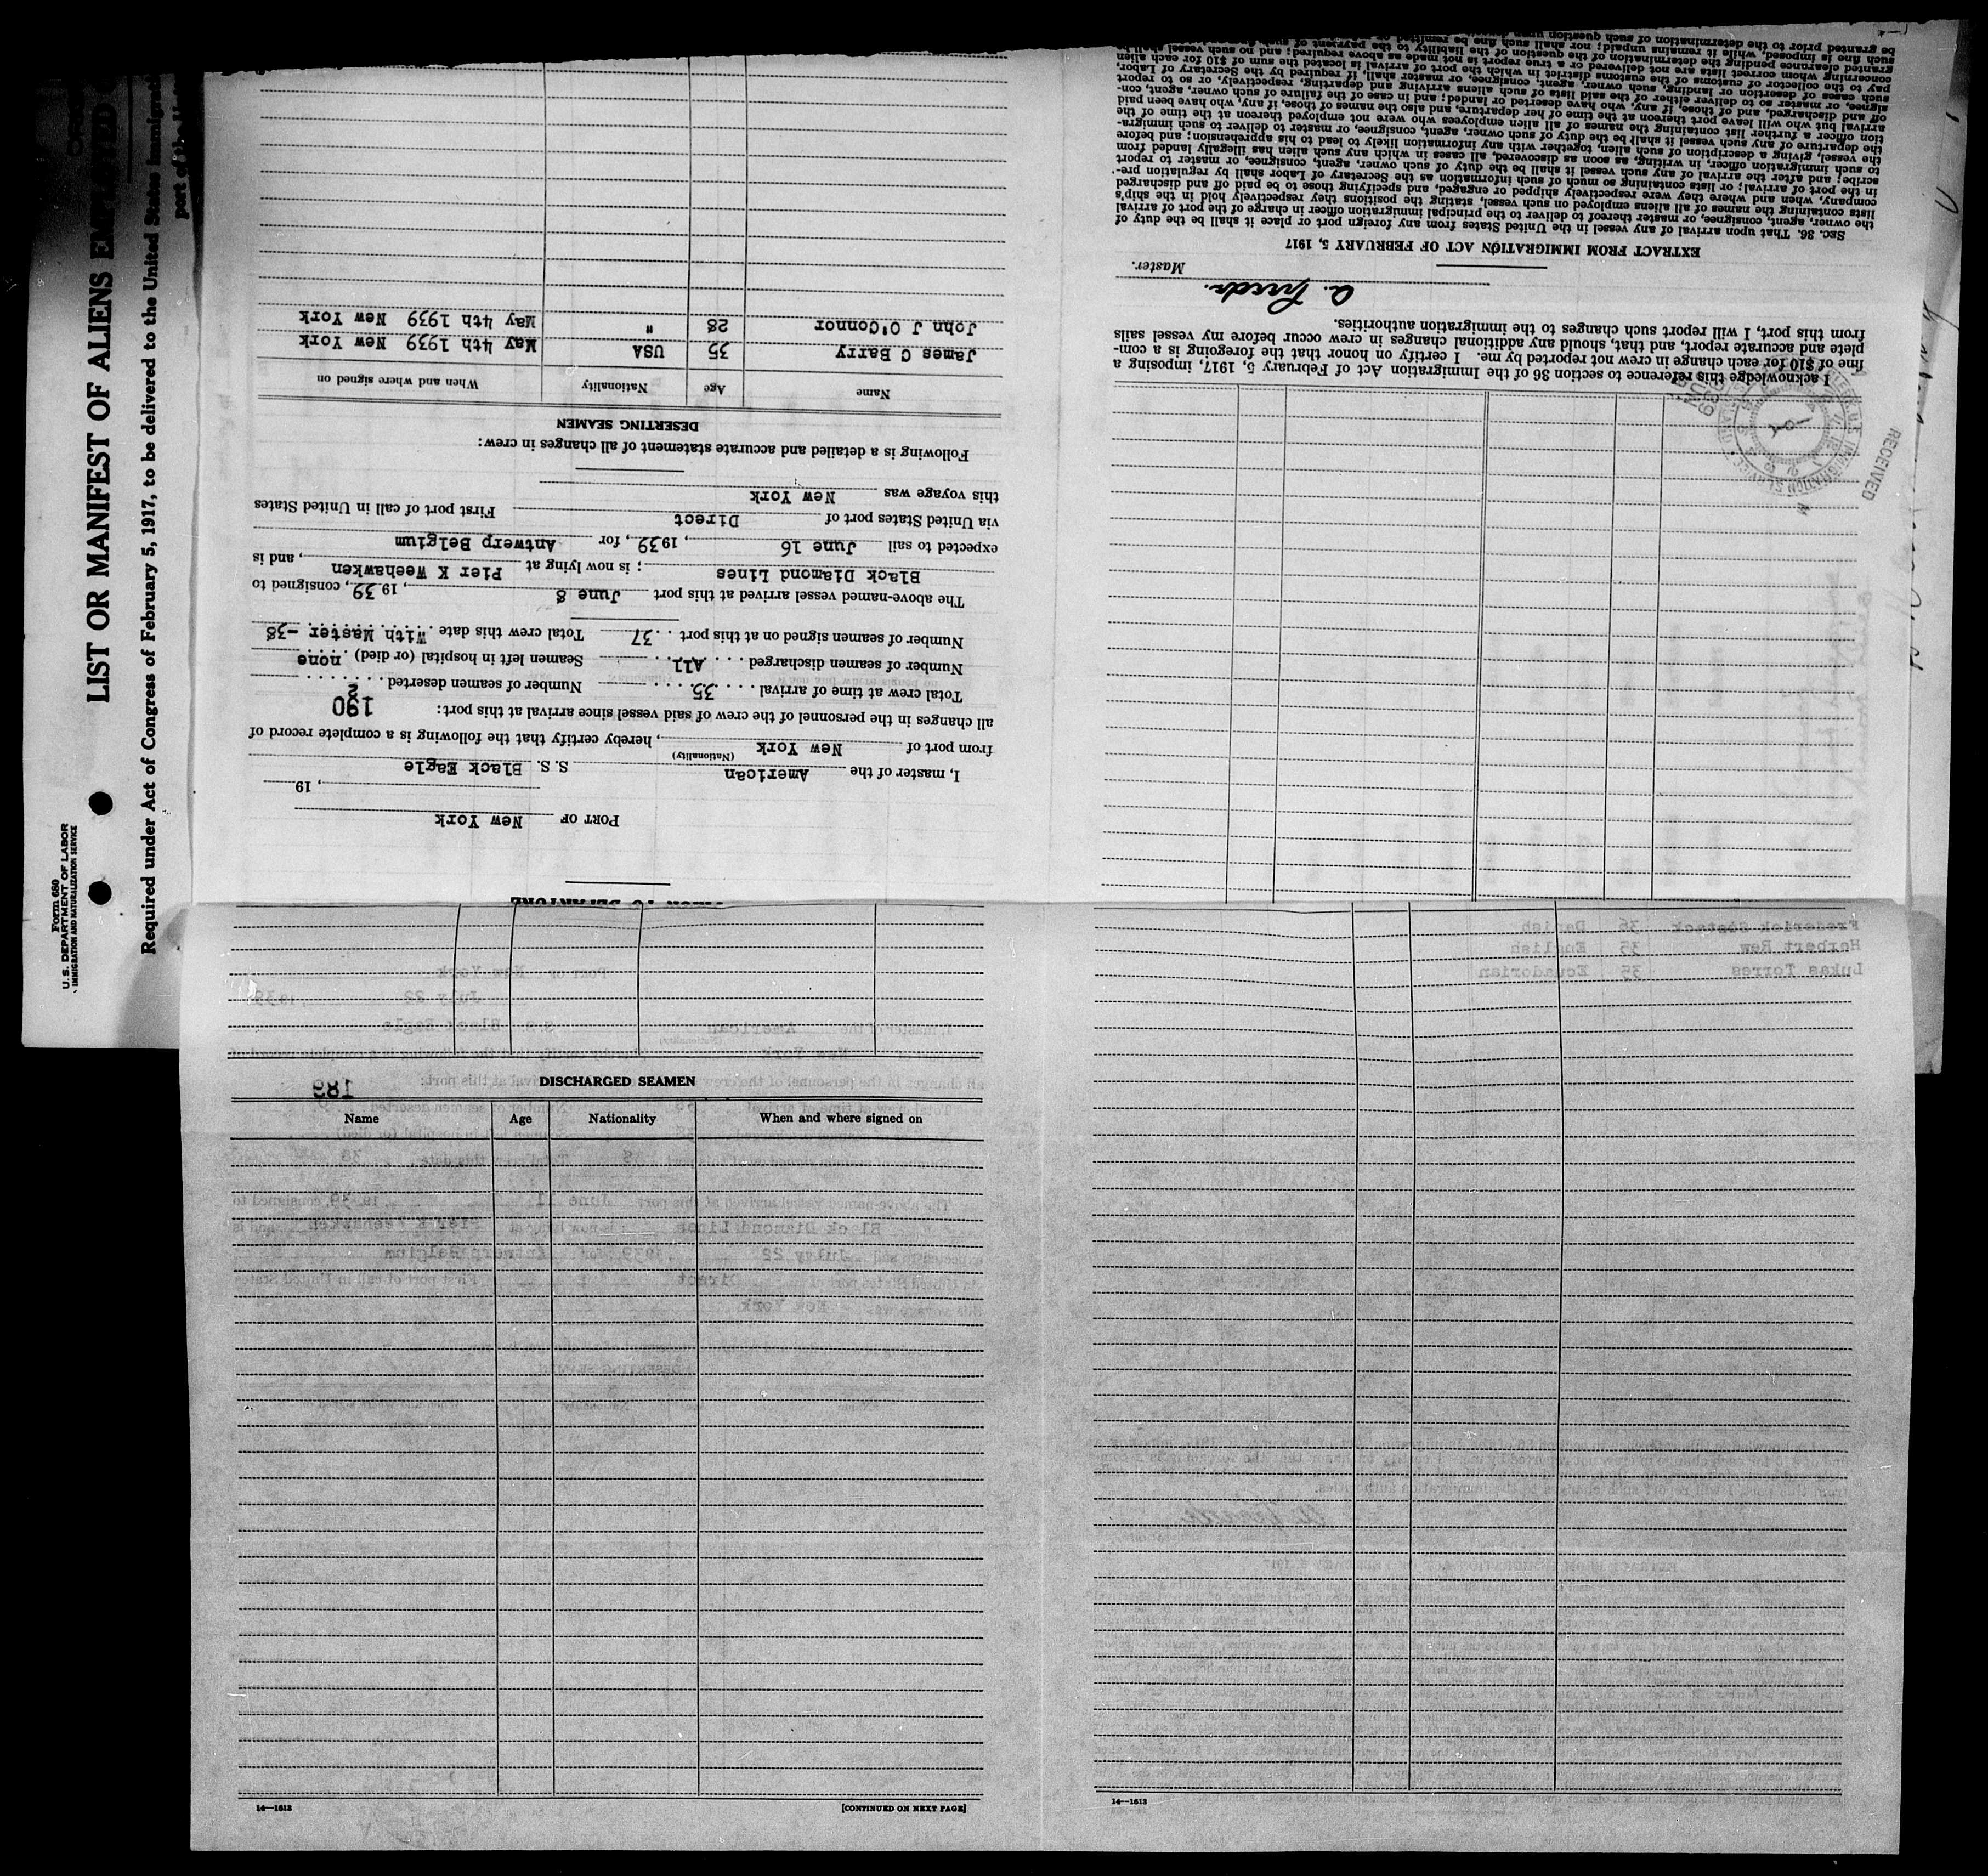 Form 680
U. S. DEPARTMENT OF LABOR
IMMIGRATION AND NATURALIZATION SERVICE
LIST OR MANIFEST OF ALIENS EMPLOYED
Required under Act of Congress of February 5, 1917, to be delivered to the United States Immigrati
part of the
PORT OF New York
, 19
I, master of the American S. S. Black Eagle
(Nationality)
from port of New York, hereby certify that the following is a complete record of
all changes in the personnel of the crew of said vessel since arrival at this port:
190
Total crew at time of arrival 35 Number of seamen deserted 2
Number of seamen discharged All Seamen left in hospital (or died) none
Number of seamen signed on at this port 37 Total crew this date With Master -38
The above-named vessel arrived at this port June 8, 1939, consigned to
Black Diamond Lines; is now lying at Pier K Weehawken, and is
expected to sail June 16, 1939, for Antwerp Belgium
via United States port of Direct First port of call in United States
this voyage was New York
Following is a detailed and accurate statement of all changes in crew:
DESERTING SEAMEN
Name Age Nationality When and where signed on
James C Barry 35 USA May 4th 1939 New York
John J O'Connor 28 " May 4th 1939 New York
I acknowledge this reference to section 36 of the Immigration Act of February 5, 1917, imposing a
fine of $10 for each change in crew not reported by me. I certify on honor that the foregoing is a com-
plete and accurate report, and that, should any additional changes in crew occur before my vessel sails
from this port, I will report such changes to the immigration authorities.
Master.
EXTRACT FROM IMMIGRATION ACT OF FEBRUARY 5, 1917
SEC. 36. That upon arrival of any vessel in the United States from any foreign port or place it shall be the duty of
the owner, agent, consignee, or master thereof to deliver to the principal immigration officer in charge of the port of arrival
lists containing the names of all aliens employed on such vessel, stating the positions they respectively hold in the ship's
company, when and where they were respectively shipped or engaged, and specifying those to be paid off and discharged
in the port of arrival; or lists containing so much of such information as the Secretary of Labor shall by regulation pre-
scribe; and after the arrival of any such vessel it shall be the duty of such owner, agent, consignee, or master to report
to such immigration officer, in writing, as soon as discovered, all cases in which any such alien has illegally landed from
the vessel, giving a description of such alien, together with any information likely to lead to his apprehension; and before
the departure of any such vessel it shall be the duty of such owner, agent, consignee, or master to deliver to such immigra-
tion officer a further list containing the names of all alien employees who were not employed thereon at the time of the
arrival but who will leave port thereon at the time of her departure, and also the names of those, if any, who have been paid
off and discharged, and of those, if any, who have deserted or landed; and in case of the failure of such owner, agent, con-
signee, or master so to deliver either of the said lists of such aliens arriving and departing, respectively, or so to report
such cases of desertion or landing, such owner, agent, consignee, or master shall, if required by the Secretary of Labor,
pay to the collector of customs of the customs district in which the port of arrival is located the sum of $10 for each alien
concerning whom correct lists are not delivered or a true report is not made as above required; and no such vessel shall be
granted clearance pending the determination of the question of the liability to the payment of such
such fine is imposed, while it remains unpaid; nor shall such fine be remitted or
be granted prior to the determination of such question upon
RECEIVED
Frederick Sostack 36 Danish
Herbert Rew 35 English
Lukas Torres 35 Ecuadorian
189
DISCHARGED SEAMEN
Name Age Nationality When and where signed on
14—1613 [CONTINUED ON NEXT PAGE]
14—1613